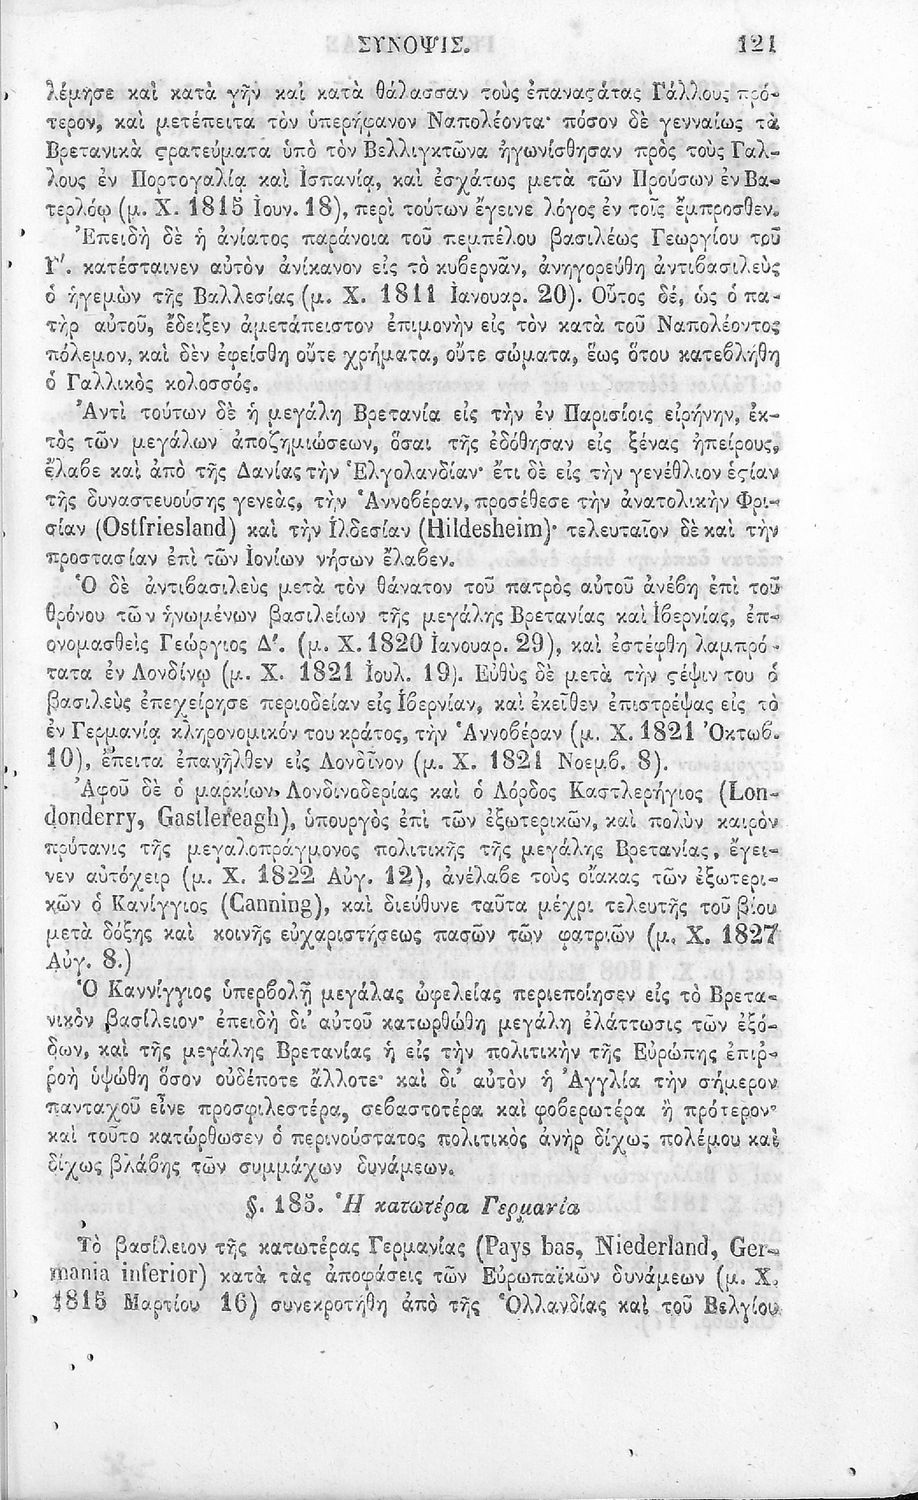 ΣΥΝΟΨΙΣ. 121
λέμησε καὶ κατὰ γῆν καὶ κατὰ θάλασσαν τοὺς ἐπαναϛάτας Γάλλους πρό-
τερον, καὶ μετέπειτα τὸν ὑπερήφανον Ναπολέοντα· πόσον δὲ γενναίως τὰ
Βρετανικὰ ϛρατεύματα ὑπὸ τὸν Βελλιγκτῶνα ἠγωνίσθησαν πρὸς τοὺς Γαλ-
λους ἐν Πορτογαλίᾳ καὶ Ἰσπανίᾳ, καὶ ἐσχάτως μετὰ τῶν Προύσων ἐν Βα-
τερλόῳ (μ. Χ. 1815 Ἰουν. 18), περὶ τούτων ἔγεινε λόγος ἐν τοῖς ἔμπροσθεν.
Ἐπειδὴ δὲ ἡ ἀνίατος παράνοια τοῦ πεμπέλου βασιλέως Γεωργίου τοῦ
Γ'. κατέσταινεν αὐτὸν ἀνίκανον εἰς τὸ κυβερνᾶν, ἀνηγορεύθη ἀντιβασιλεὺς
ὁ ἡγεμὼν τῆς Βαλλεσίας (μ. Χ. 1811 Ἰανουαρ. 20). Οὗτος δὲ, ὡς ὁ πα-
τὴρ αὐτοῦ, ἔδειξεν ἀμετάπειστον ἐπιμονὴν εἰς τὸν κατὰ τοῦ Ναπολέοντος
πόλεμον, καὶ δὲν ἐφείσθη οὔτε χρήματα, οὔτε σώματα, ἕως ὅτου κατεβλήθη
ὁ Γαλλικὸς κολοσσός.
Ἀντὶ τούτων δὲ ἡ μεγάλη Βρετανία εἰς τὴν ἐν Παρισίοις εἰρήνην, ἐκ-
τὸς τῶν μεγάλων ἀποζημιώσεων, ὅσαι τῆς ἐδόθησαν εἰς ξένας ἠπείρους,
ἔλαβε καὶ ἀπὸ τῆς Δανίας τὴν Ἑλγολανδίαν· ἔτι δὲ εἰς τὴν γενέθλιον ἑϛίαν
τῆς δυναστευούσης γενεᾶς, τὴν Ἀννοβέραν, προσέθεσε τὴν ἀνατολικὴν Φρι-
σίαν (Ostfriesland) καὶ τὴν Ἰλδεσίαν (Hildesheim)· τελευταῖον δὲ καὶ τὴν
προστασίαν ἐπὶ τῶν Ἰονίων νήσων ἔλαβεν.
Ὁ δὲ ἀντιβασιλεὺς μετὰ τὸν θάνατον τοῦ πατρὸς αὐτοῦ ἀνέβη ἐπὶ τοῦ
θρόνου τῶν ἡνωμένων βασιλείων τῆς μεγάλης Βρετανίας καὶ Ἰβερνίας, ἐπ-
ονομασθεὶς Γεώργιος Δ'. (μ. Χ. 1820 Ἰανουαρ. 29), καὶ ἐστέφθη λαμπρό-
τατα ἐν Λονδίνῳ (μ. Χ. 1821 Ἰουλ. 19). Εὐθὺς δὲ μετὰ τὴν ϛέψιν του ὁ
βασιλεὺς ἐπεχείρησε περιοδείαν εἰς Ἰβερνίαν, καὶ ἐκεῖθεν ἐπιστρέψας εἰς τὸ
ἐν Γερμανίᾳ κληρονομικόν του κράτος, τὴν Ἀννοβέραν (μ. Χ. 1821 Ὀκτωβ.
10), ἔπειτα ἐπανῆλθεν εἰς Λονδῖνον (μ. Χ. 1821 Νοεμβ. 8).
Ἀφοῦ δὲ ὁ μαρκίων Λονδινοδερίας καὶ ὁ Λόρδος Καστλερήγιος (Lon-
donderry, Gastlereagh), ὑπουργὸς ἐπὶ τῶν ἐξωτερικῶν, καὶ πολὺν καιρὸν
πρύτανις τῆς μεγαλοπράγμονος πολιτικῆς τῆς μεγάλης Βρετανίας, ἔγει-
νεν αὐτόχειρ (μ. Χ. 1822 Αὐγ. 12), ἀνέλαβε τοὺς οἴακας τῶν ἐξωτερι-
κῶν ὁ Κανίγγιος (Canning), καὶ διεύθυνε ταῦτα μέχρι τελευτῆς τοῦ βίου
μετὰ δόξης καὶ κοινῆς εὐχαριστήσεως πασῶν τῶν φατριῶν (μ. Χ. 1827
Αὐγ. 8.)
Ὁ Καννίγγιος ὑπερβολῇ μεγάλας ὠφελείας περιεποίησεν εἰς τὸ Βρετα-
νικὸν βασίλειον· ἐπειδὴ δι' αὐτοῦ κατωρθώθη μεγάλη ἐλάττωσις τῶν ἐξό-
δων, καὶ τῆς μεγάλης Βρετανίας ἡ εἰς τὴν πολιτικὴν τῆς Εὐρώπης ἐπιῤ-
ῥοὴ ὑψώθη ὅσον οὐδέποτε ἄλλοτε· καὶ δι' αὐτὸν ἡ Ἀγγλία τὴν σήμερον
πανταχοῦ εἶνε προσφιλεστέρα, σεβαστοτέρα καὶ φοβερωτέρα ἢ πρότερον·
καὶ τοῦτο κατώρθωσεν ὁ περινούστατος πολιτικὸς ἀνὴρ δίχως πολέμου καὶ
δίχως βλάβης τῶν συμμάχων δυνάμεων.
§. 185. Ἡ κατωτέρα Γερμανία
Τὸ βασίλειον τῆς κατωτέρας Γερμανίας (Pays bas, Niederland, Ger-
mania inferior) κατὰ τὰς ἀποφάσεις τῶν Εὐρωπαϊκῶν δυνάμεων (μ. Χ.
1815 Μαρτίου 16) συνεκροτήθη ἀπὸ τῆς Ὁλλανδίας καὶ τοῦ Βελγίου